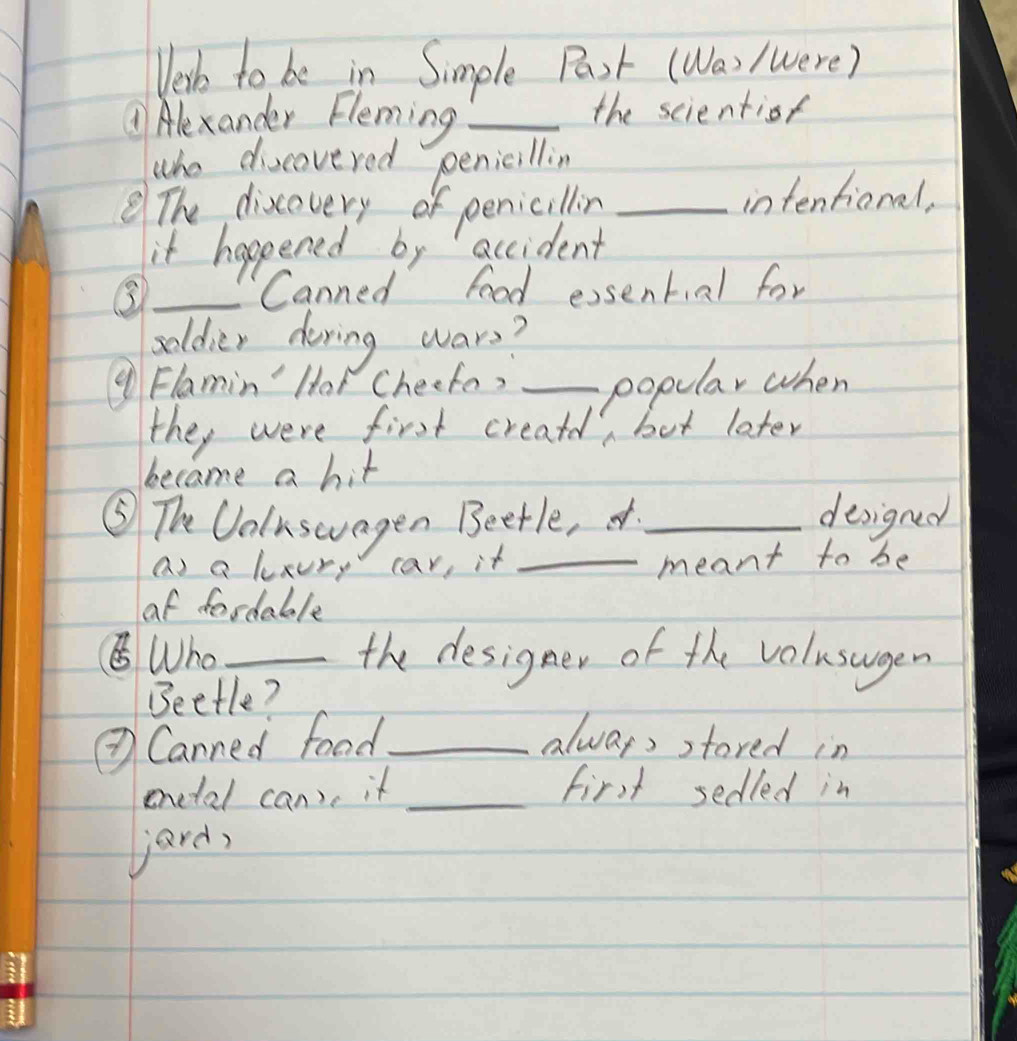 Verb to be in Simple Past (Was/Were)
① Alexander Fleming ____ the scientist
who discovered penicillin
② The discovery of penicillin ____ intentional,
it happened by accident
③ ____ Canned food essential for
soldier during wars?
④ Flamin' Hot Cheetos ____ popular when
they were first creatd, but later
became a hit
⑤ The Volkswagen Beetle, ____ designed
as a luxury car, it ____ meant to be
af fordable
⑥ Who ____ the designer of the volkswgen
Beetle?
⑦ Canned food ____ always stored in
metal cans, it ____ first sedled in
jards